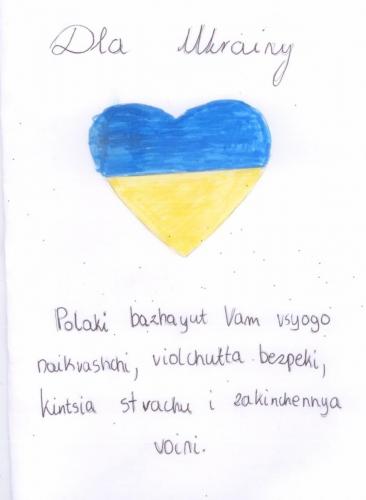 Dla Ukrainy
Polaki bazhayut Vam vsyogo
naikrashchi, violchutta bezpeki,
kintsia strachu i zakinchennya
voini.